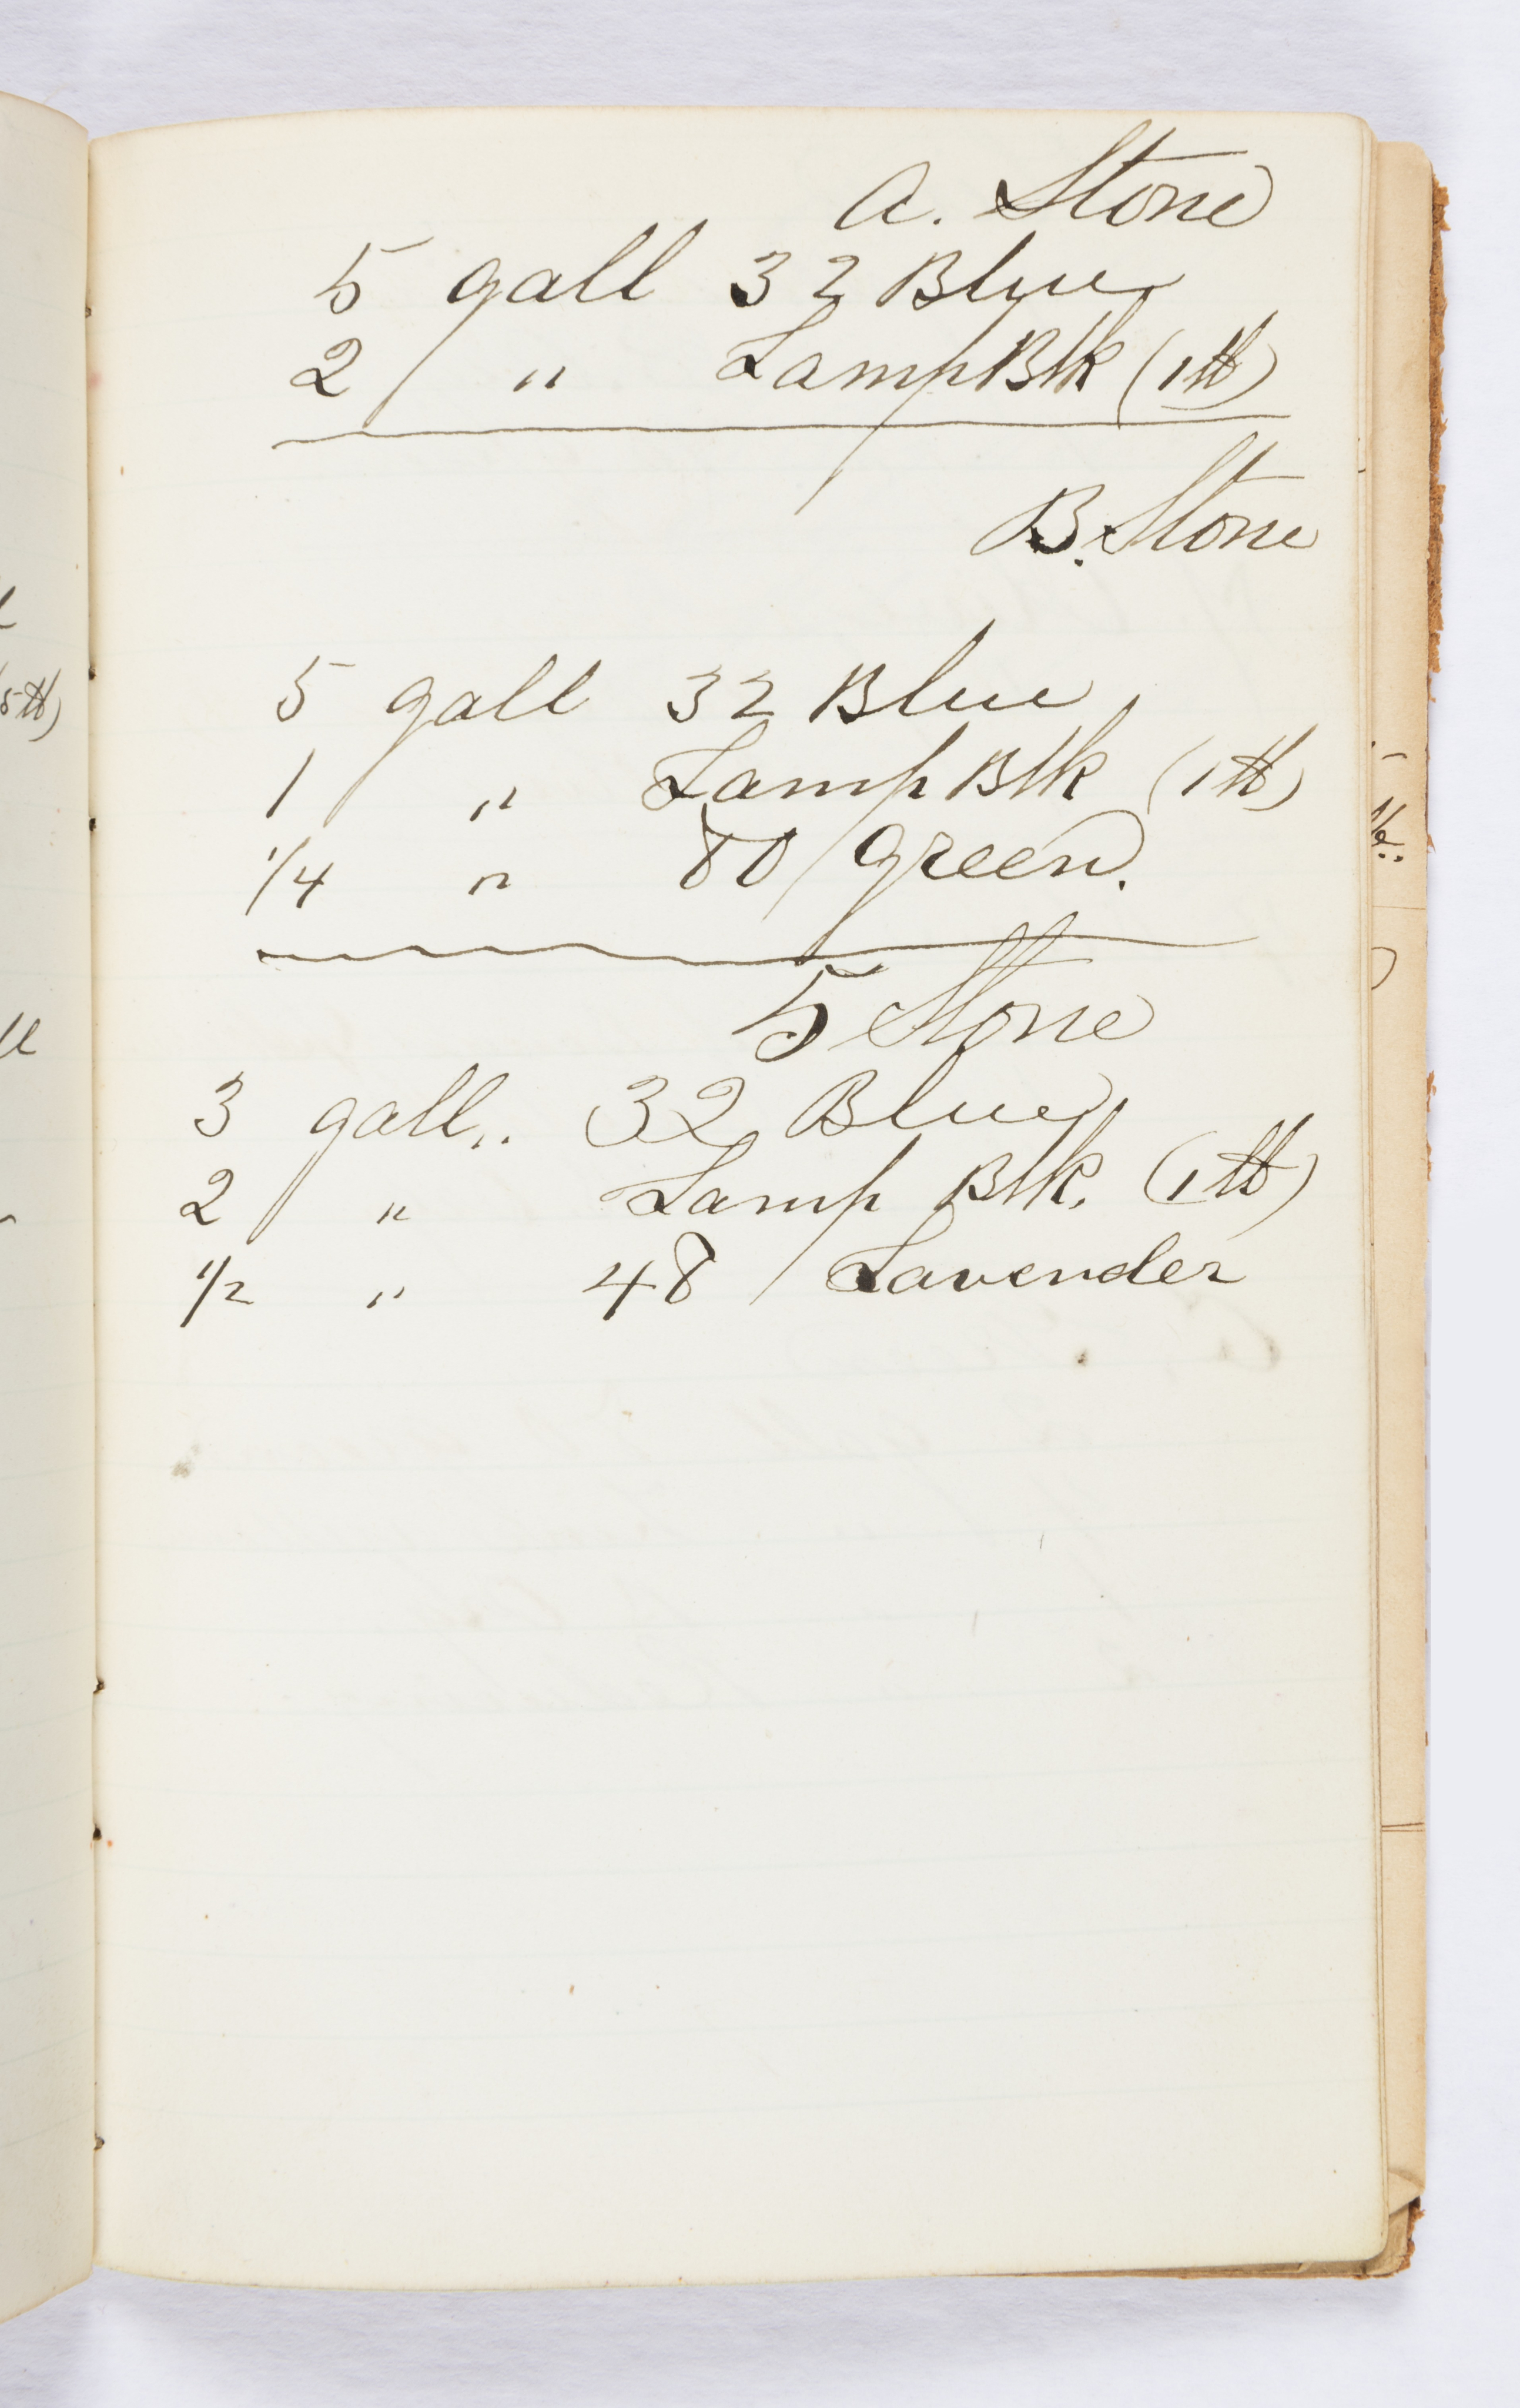 A. Stone
5 gall 32 Blue
2 " Lamp Blk (1 ℔)
B. Stone
5 gall 32 Blue
1 " Lamp Blk (1 ℔)
1/4 " 80 Green.
5 Stone
3 gall.. 32 Blue
2 " Lamp Blk. (1 ℔)
1/2 " 48 Lavender